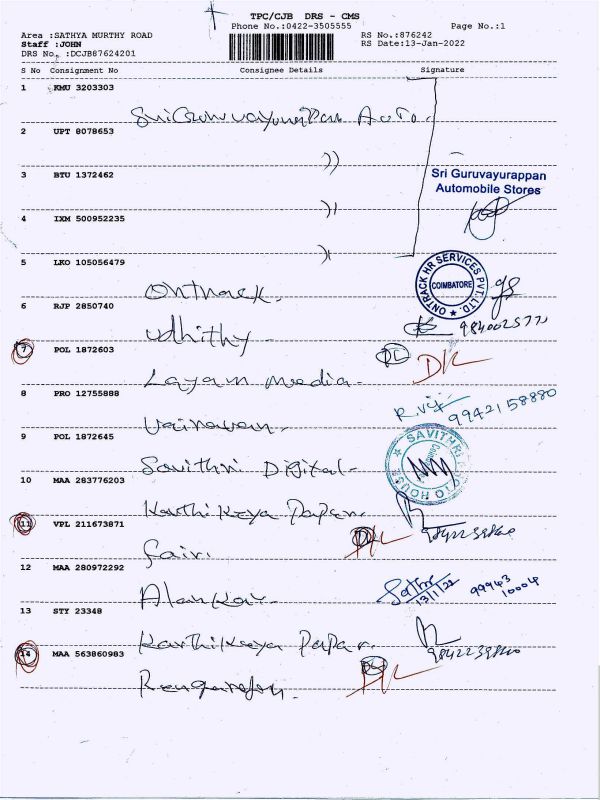 TPC/CJB DRS - CMS
Phone No.:0422-3505555 Page No.:1
Area :SATHYA MURTHY ROAD RS No.:876242
Staff :JOHN RS Date:13-Jan-2022
DRS No. :DCJB87624201
S No Consignment No Consignee Details Signature
1 KMU 3203303
Auto.
2 UPT 8078653
))
3 BTU 1372462
Sri Guruvayurappan
Automobile Stores
4 IXM 500952235
5 LKO 105056479
ONTRACK HR SERVICES PVT. LTD. COIMBATORE
Ontrack.
6 RJP 2850740
Udhithy
7 POL 1872603
DL
Layam media.
8 PRO 12755888
99421 58880
Vairavan.
9 POL 1872645
Savithri Digital
10 MAA 283776203
Karthikeya Paper.
11 VPL 211673871
Fair.
12 MAA 280972292
13/1/22 99943
10004
Alankar.
13 STY 23348
Karthikeya Paper.
14 MAA 563860983